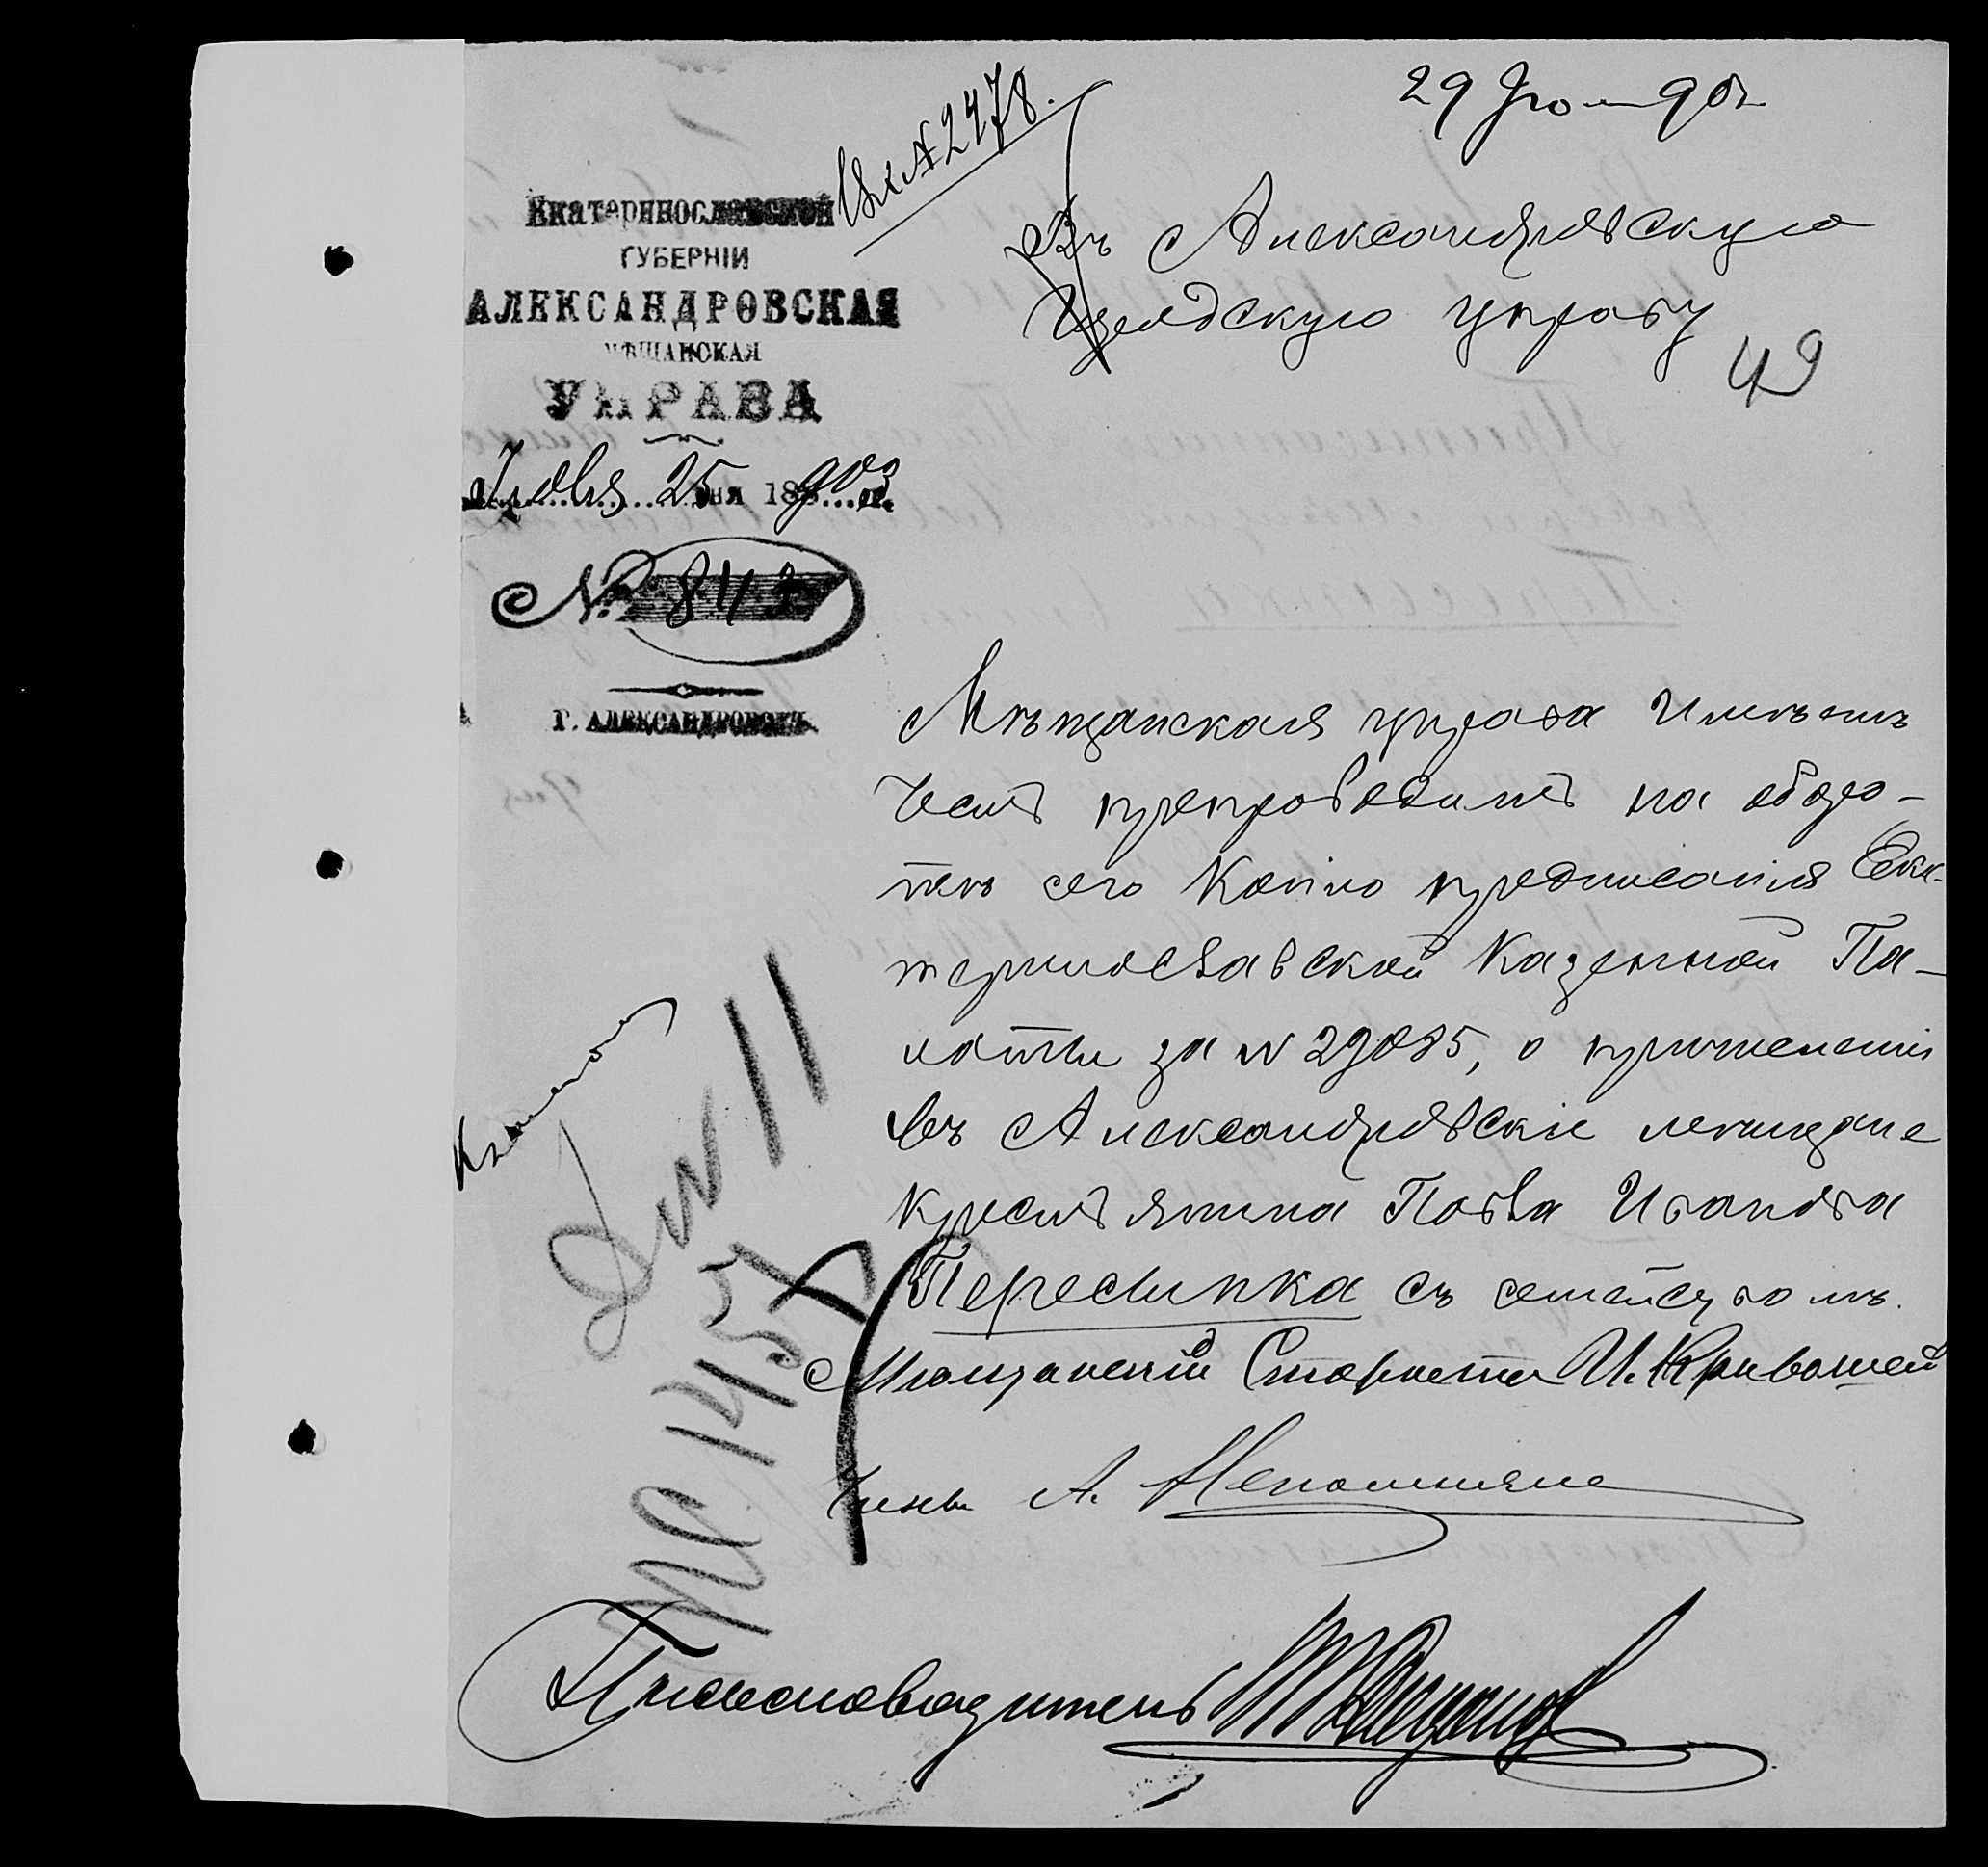 29 Июля 90
Вх № 2478.
Екатеринославской
ГУБЕРНІИ
АЛЕКСАНДРОВСКАЯ
МѢЩАНСКАЯ
УПРАВА
Іюля 25 дня 1903 г.
№ 843
Г. АЛЕКСАНДРОВСКЪ
Въ Александровскую
Городскую управу
49
Мѣщанская управа Имѣетъ
честь препроводить на оборо-
тѣ сего копію предписанія Ека-
теринославской Казенной Па-
латы за № 29085, о причисленіи
въ Александровскіе мещане
крестьянина Павла Иванова
Пересыпка съ семействомъ.
Мѣщанскій Староста И. Кривошей
Членъ А. Непомнящ
Письмоводитель
№ 11
1457